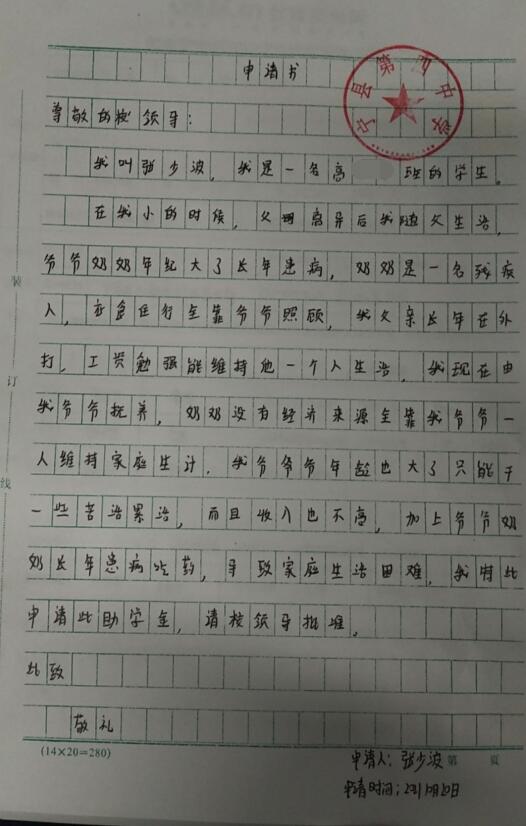 申请书
宁县第四中学
尊敬的校领导：
我叫张少波，我是一名高 班的学生。
在我小的时候，父母离异后我随父生活，
爷爷奶奶年纪大了长年患病，奶奶是一名残疾
人，衣食住行全靠爷爷照顾，我父亲长年在外
打，工资勉强能维持他一个人生活，我现在由
我爷爷抚养，奶奶没有经济来源全靠我爷爷一
人维持家庭生计，我爷爷爷年龄也大了只能干
一些苦活累活，而且收入也不高，加上爷爷奶
奶长年患病吃药，导致家庭生活困难，我特此
申请此助学金，请校领导批准。
此致
敬礼
(14×20=280)
第 页
申请人：张少波
申请时间：2021 20日
装
订
线